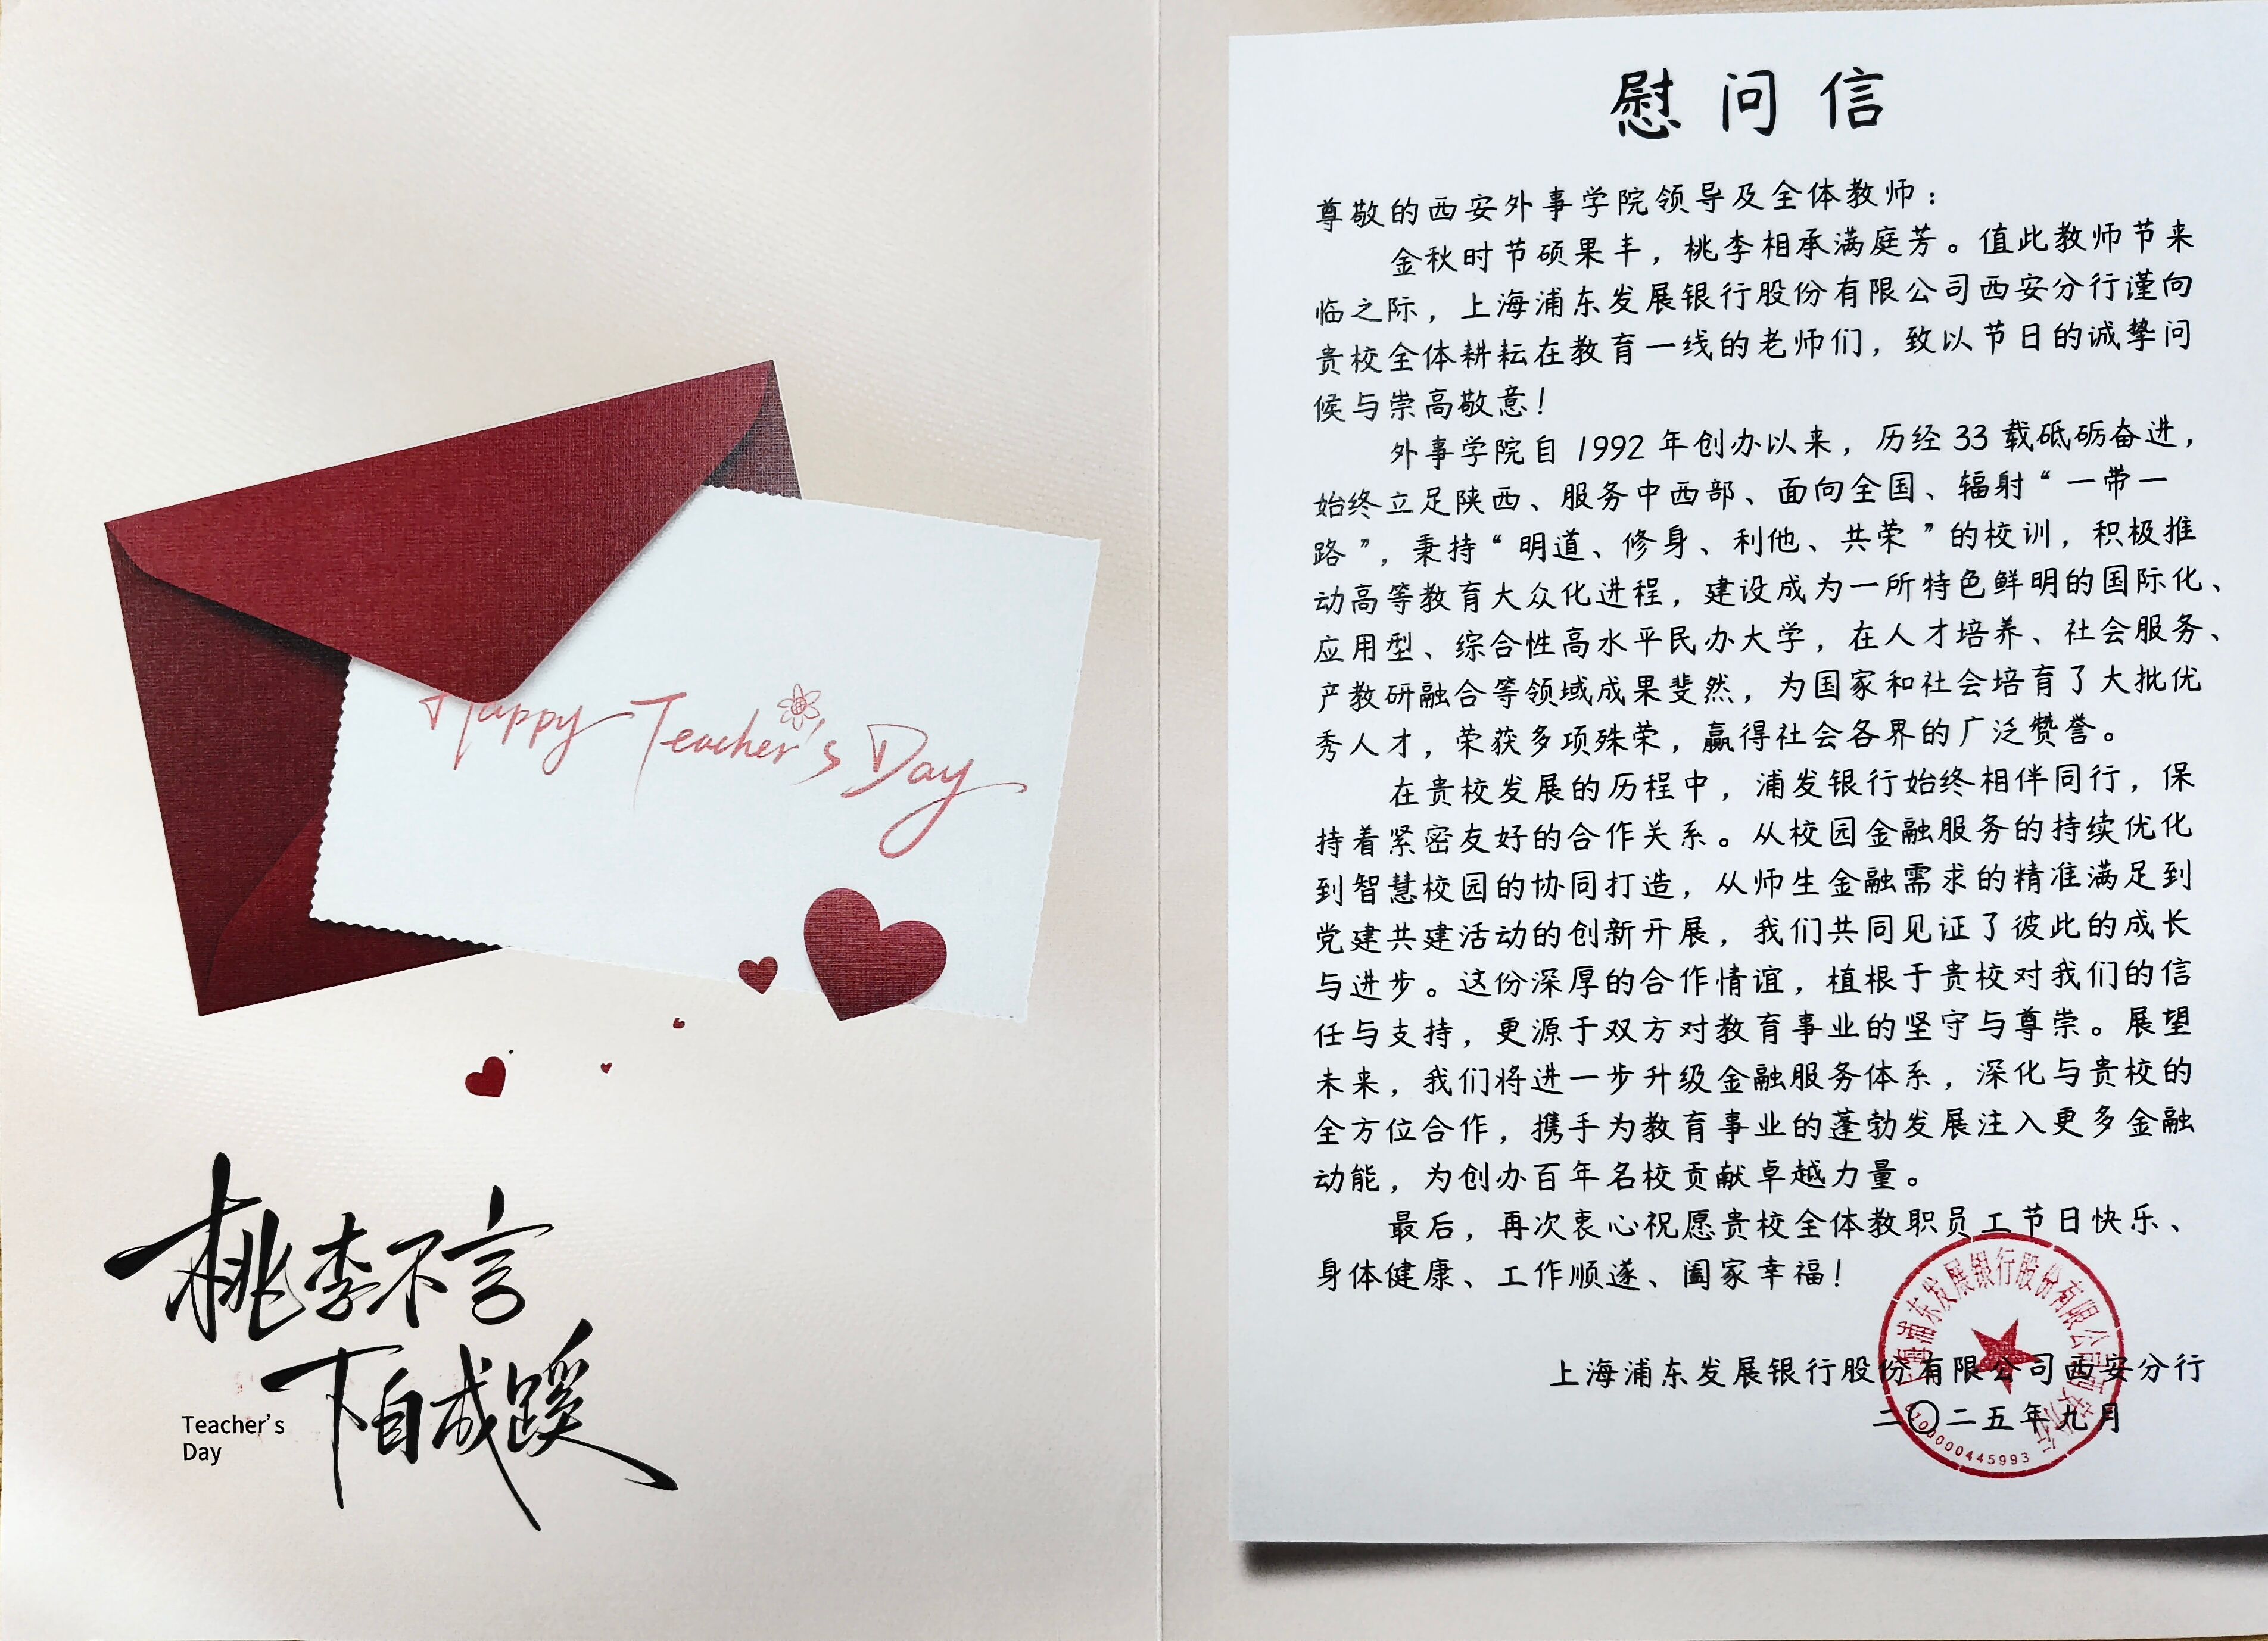 Happy Teacher's Day
桃李不言
下自成蹊
Teacher's
Day
慰问信
尊敬的西安外事学院领导及全体教师：
金秋时节硕果丰，桃李相承满庭芳。值此教师节来
临之际，上海浦东发展银行股份有限公司西安分行谨向
贵校全体耕耘在教育一线的老师们，致以节日的诚挚问
候与崇高敬意！
外事学院自 1992 年创办以来，历经 33 载砥砺奋进，
始终立足陕西、服务中西部、面向全国、辐射“一带一
路”，秉持“明道、修身、利他、共荣”的校训，积极推
动高等教育大众化进程，建设成为一所特色鲜明的国际化、
应用型、综合性高水平民办大学，在人才培养、社会服务、
产教研融合等领域成果斐然，为国家和社会培育了大批优
秀人才，荣获多项殊荣，赢得社会各界的广泛赞誉。
在贵校发展的历程中，浦发银行始终相伴同行，保
持着紧密友好的合作关系。从校园金融服务的持续优化
到智慧校园的协同打造，从师生金融需求的精准满足到
党建共建活动的创新开展，我们共同见证了彼此的成长
与进步。这份深厚的合作情谊，植根于贵校对我们的信
任与支持，更源于双方对教育事业的坚守与尊崇。展望
未来，我们将进一步升级金融服务体系，深化与贵校的
全方位合作，携手为教育事业的蓬勃发展注入更多金融
动能，为创办百年名校贡献卓越力量。
最后，再次衷心祝愿贵校全体教职员工节日快乐、
身体健康、工作顺遂、阖家幸福！
上海浦东发展银行股份有限公司西安分行
二〇二五年九月
上海浦东发展银行股份有限公司西安分行
6100000445993